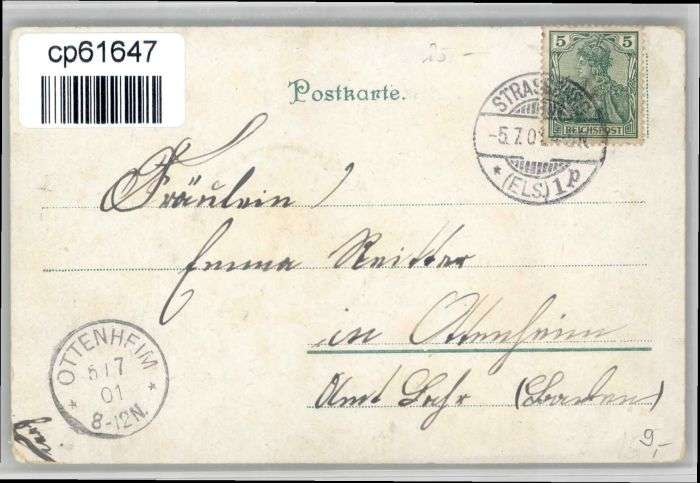 cp61647
25.-
5 5
Postkarte.
STRASSBURG
-5.7.01
REICHSPOST
* (ELS.) 1 p
Fräulein
Emma Reitter
in Ottenheim
Amt Lahr (Baden)
* OTTENHEIM *
5 7
01
8-12N.
9,-